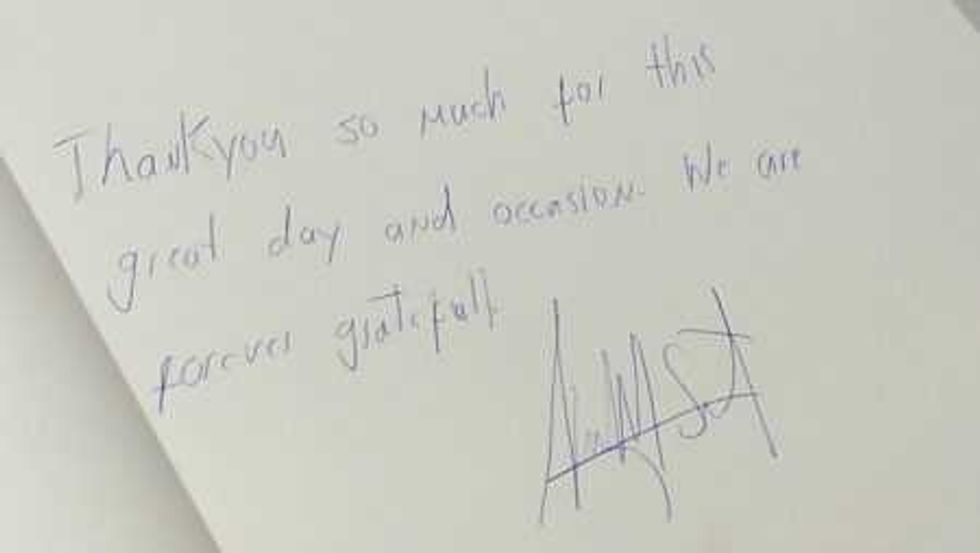 Thankyou so much for this
great day and occasion. We are
forever gratefull